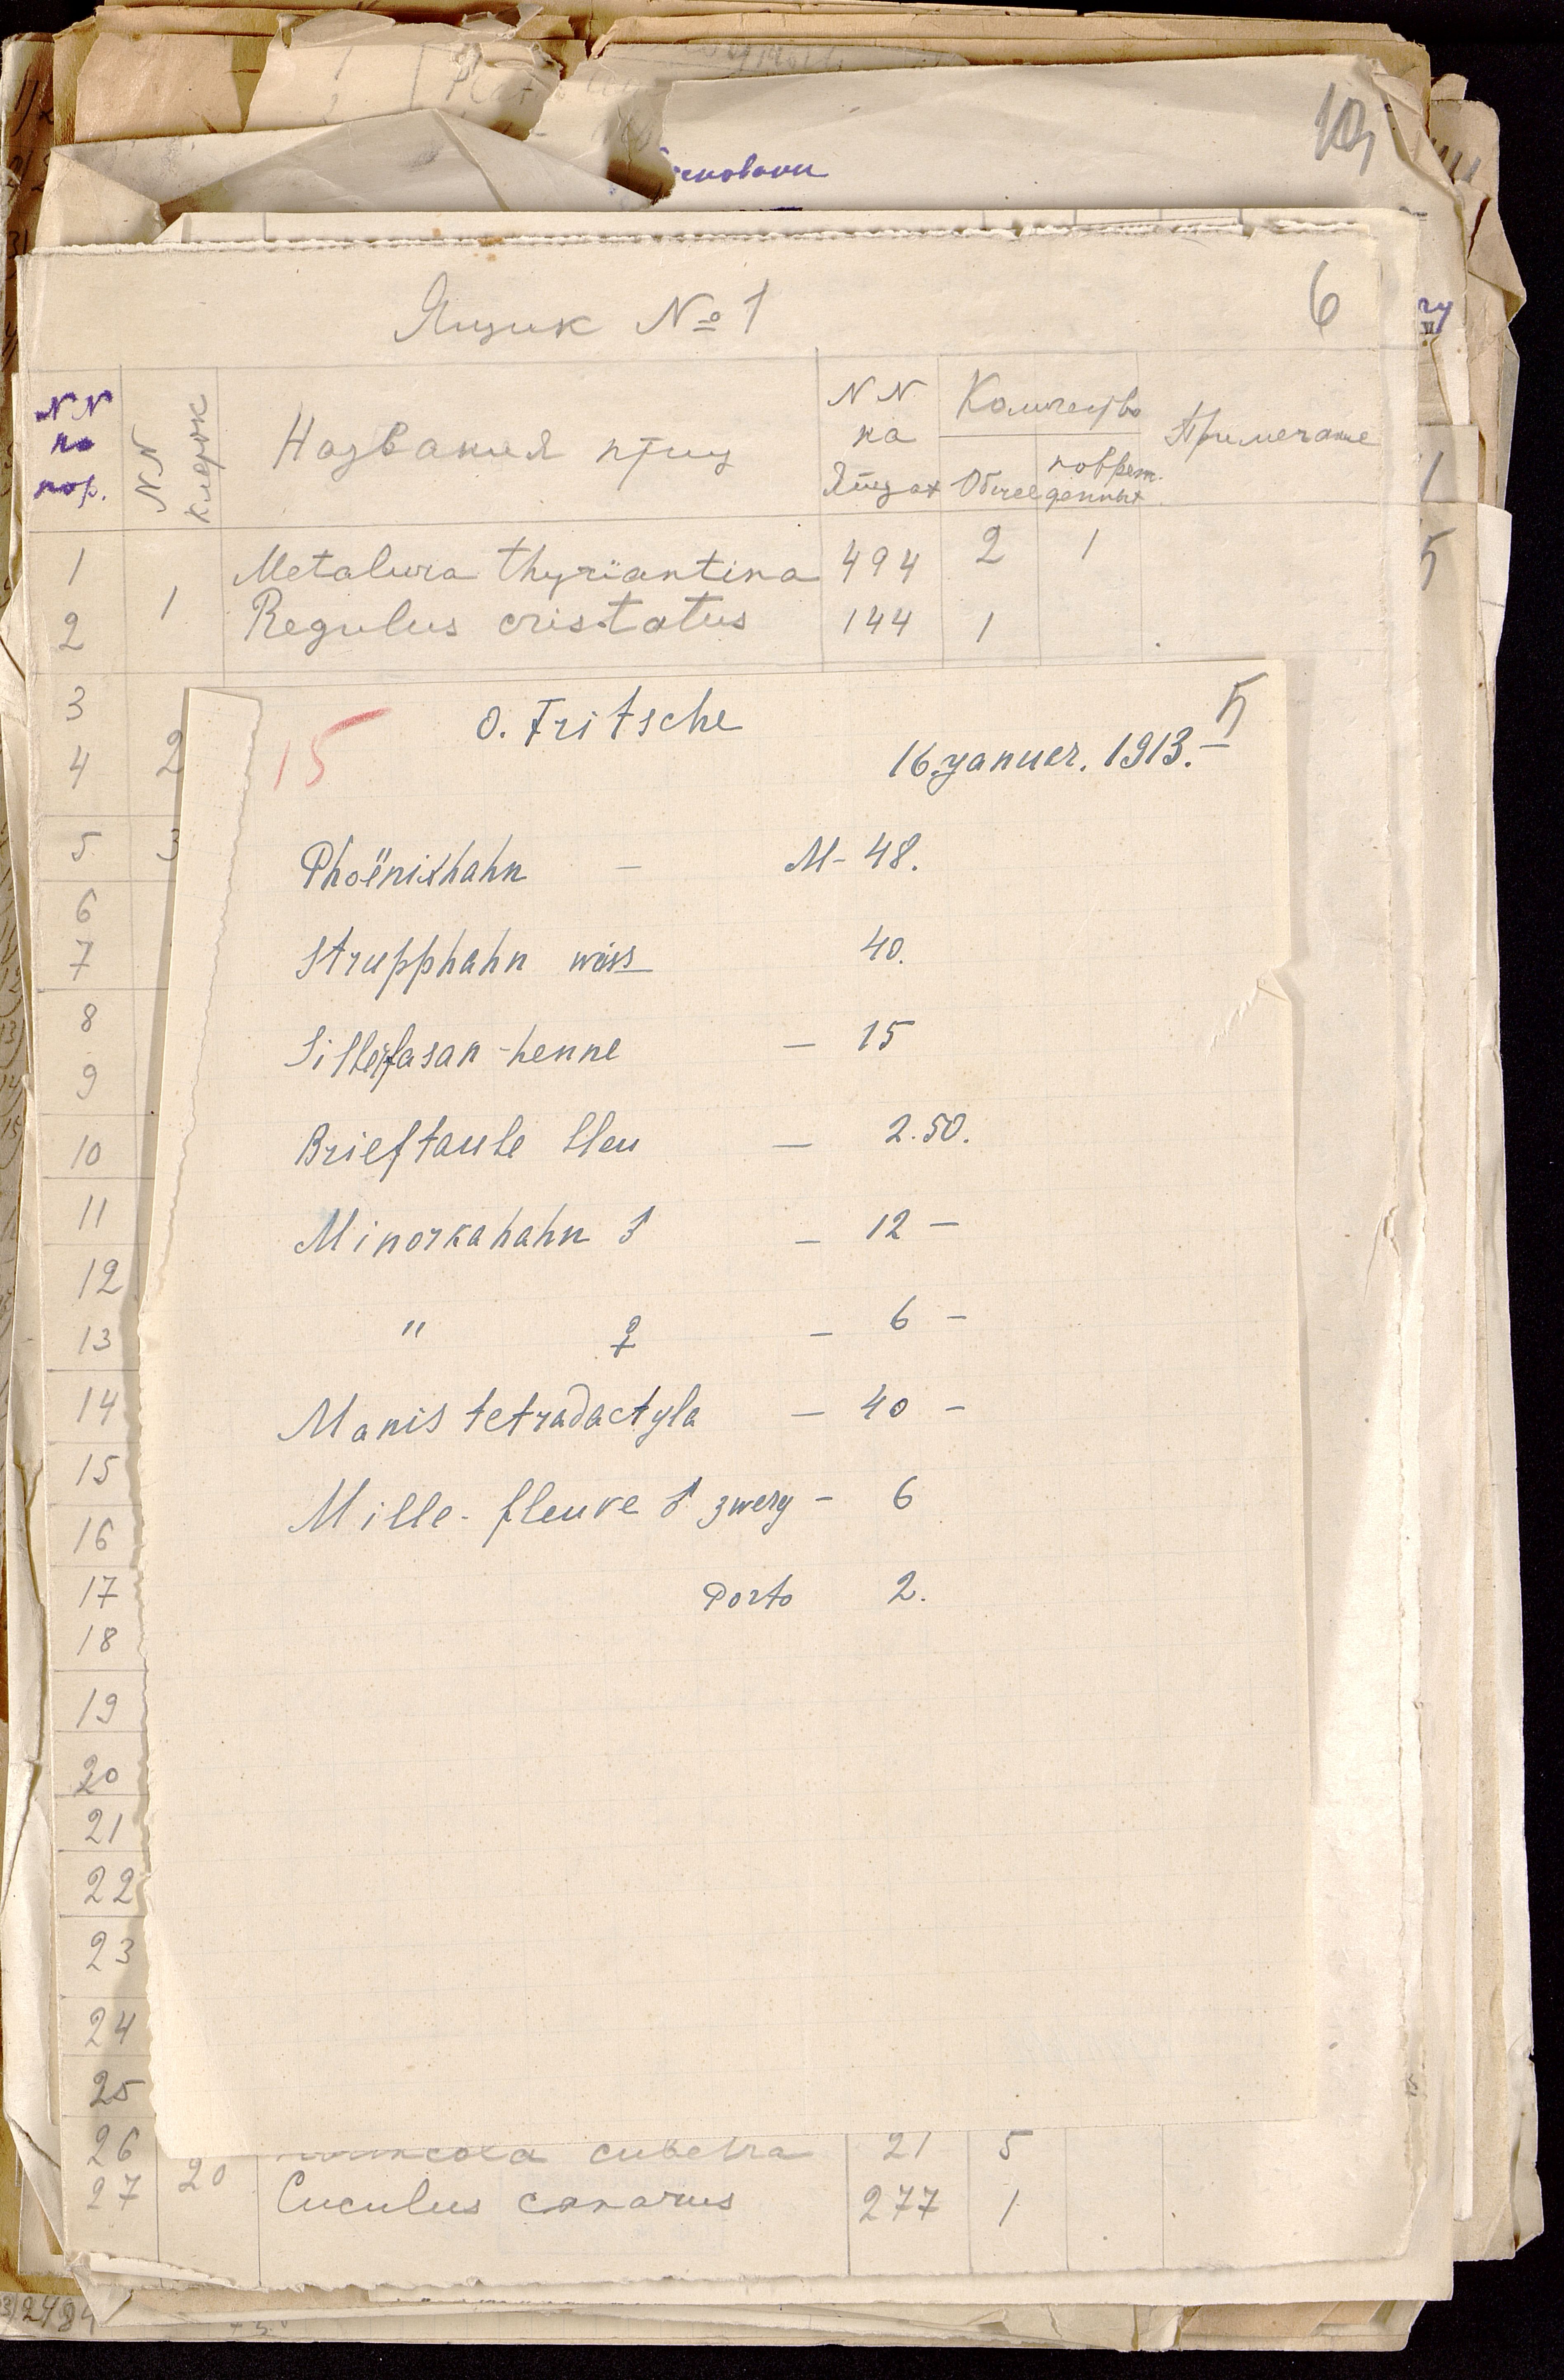 10
6
Ящик № 1
NN по пор.
NN клеток
Названия птиц
NN на яйцах
Количество
Общее
поврежденных
Примечание
1 Metalura thyriantina 494 2 1
1
2 Regulus cristatus 144 1
3
4 2
5 3
6
7
8
9
10
11
12
13
14
15
16
17
18
19
20
21
22
23
24
25
26 cubetra 21 5
27 20 Cuculus canorus 277 1
15 O. Fritsche 5
16. Januer. 1913.
Phoënixhahn — M- 48.
Strupphahn weiss 40.
fasan-henne — 15
Brieftaube bleu — 2.50.
Minorkahahn ♂ — 12 —
" ♀ — 6 —
Manis tetradactyla — 40 —
Mille-fleure ♂ zwerg — 6
Porto 2.